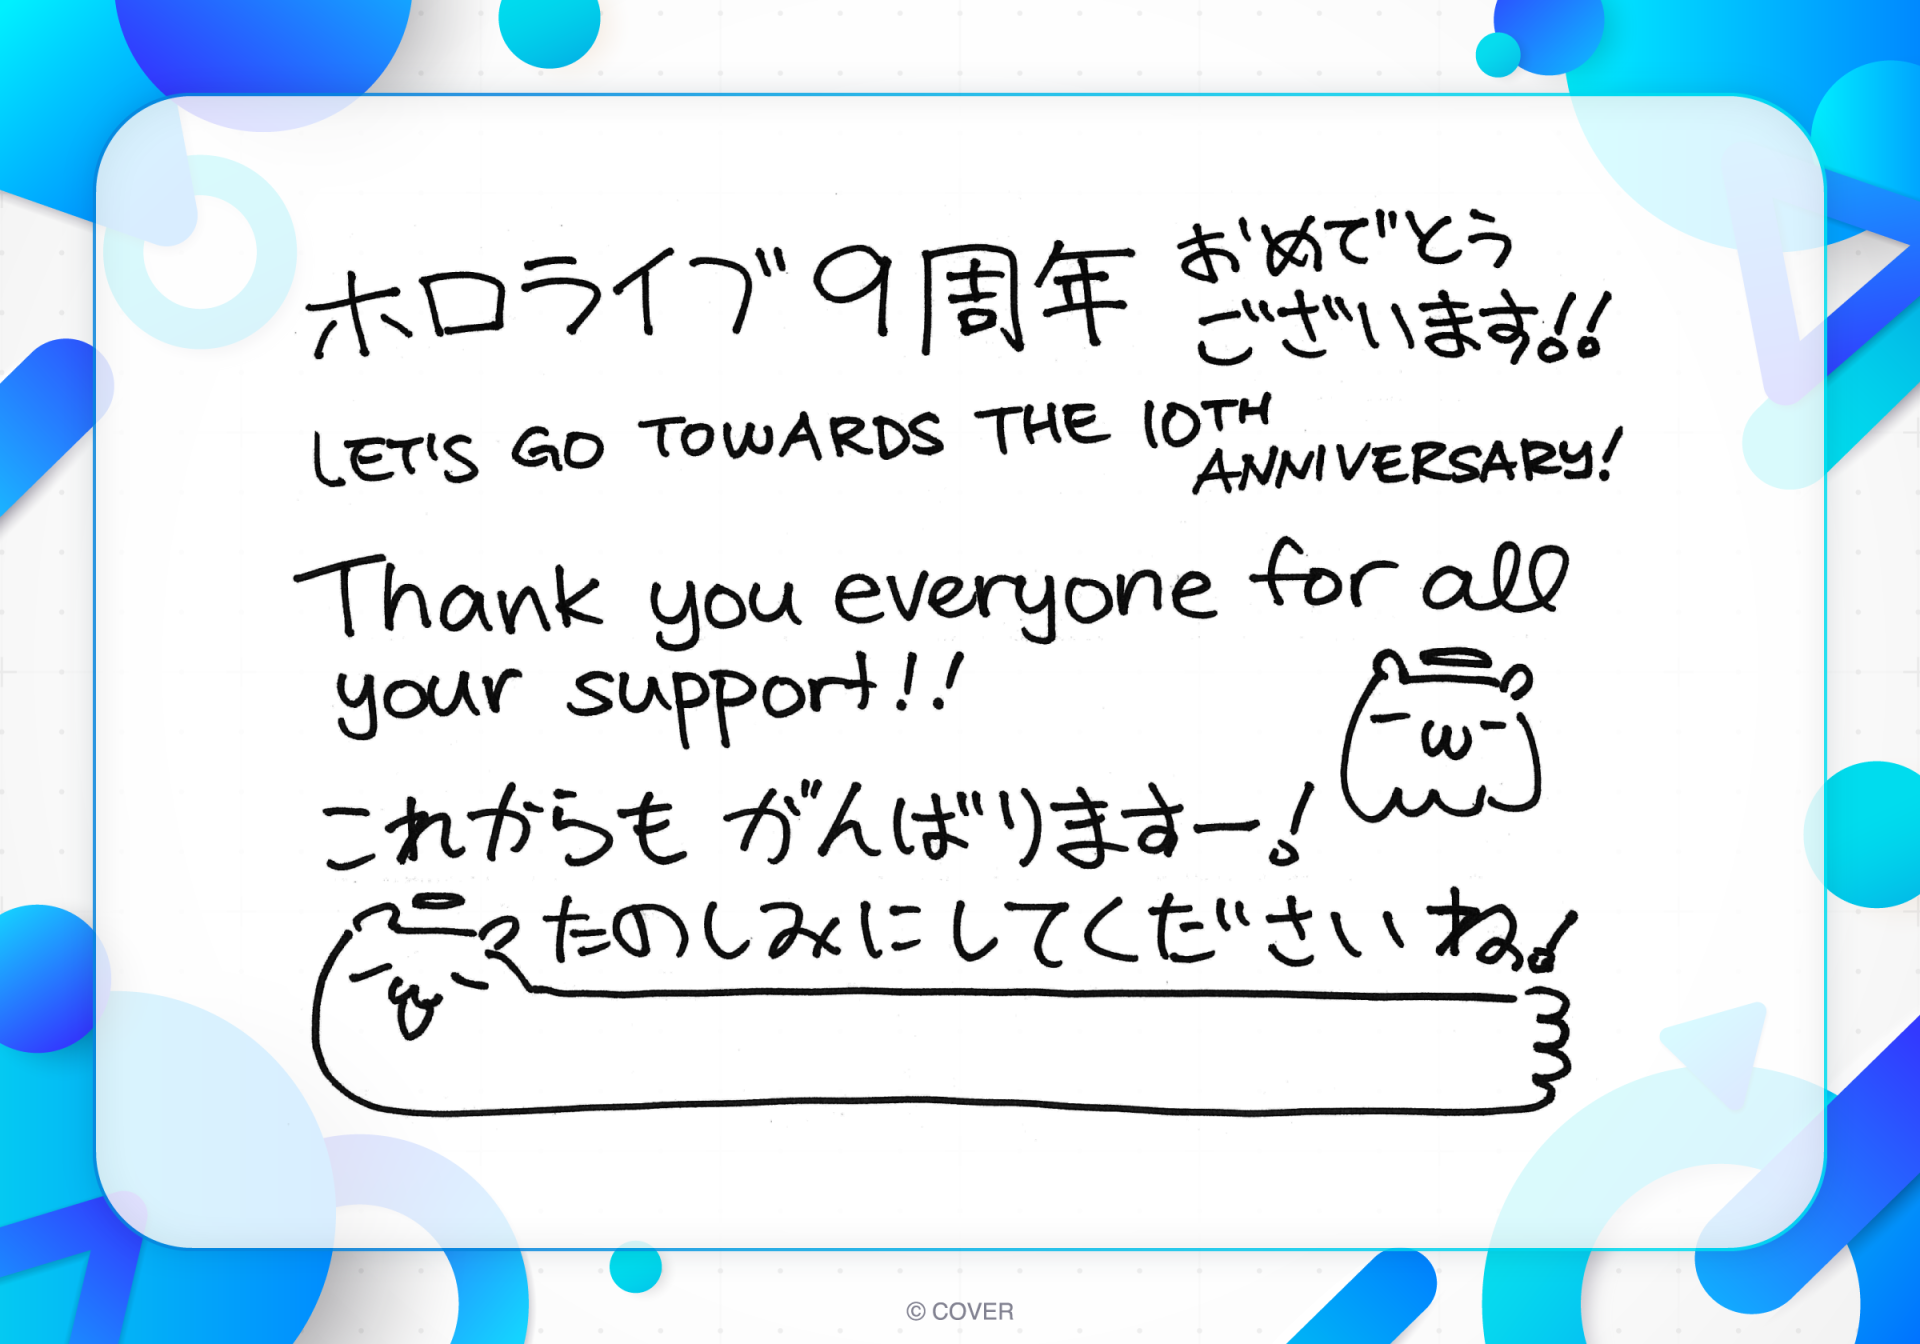 ホロライブ9周年 おめでとう
ございます!!
LET'S GO TOWARDS THE 10TH
ANNIVERSARY!
Thank you everyone for all
your support!!
これからも がんばりますー!
たのしみにしてくださいね!
© COVER